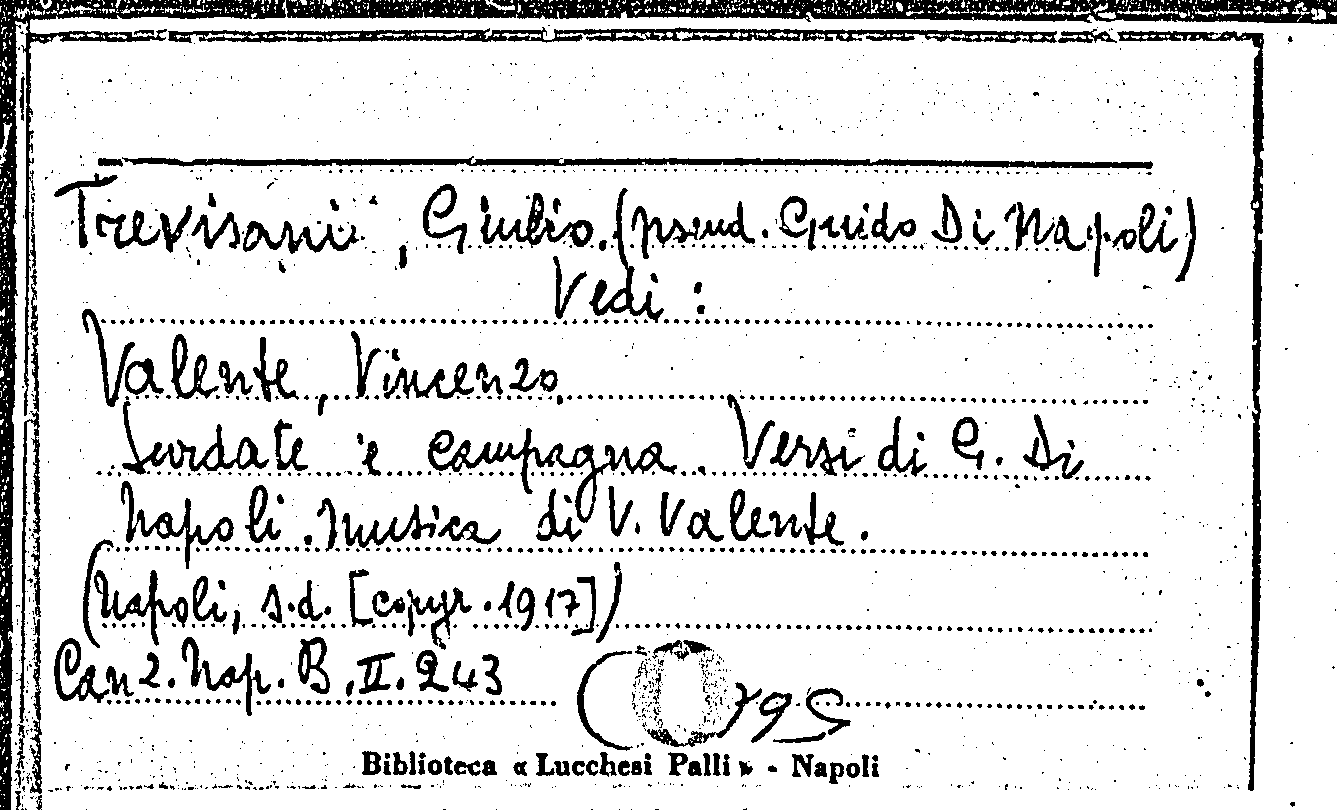 Trevisani, Giulio. (pseud. Guido Di Napoli)
Vedi :
Valente, Vincenzo.
Surdate 'e campagna. Versi di G. Di
Napoli. Musica di V. Valente.
(Napoli, s.d. [copyr. 1917])
Canz. Nap. B. II. 243
Biblioteca « Lucchesi Palli » - Napoli